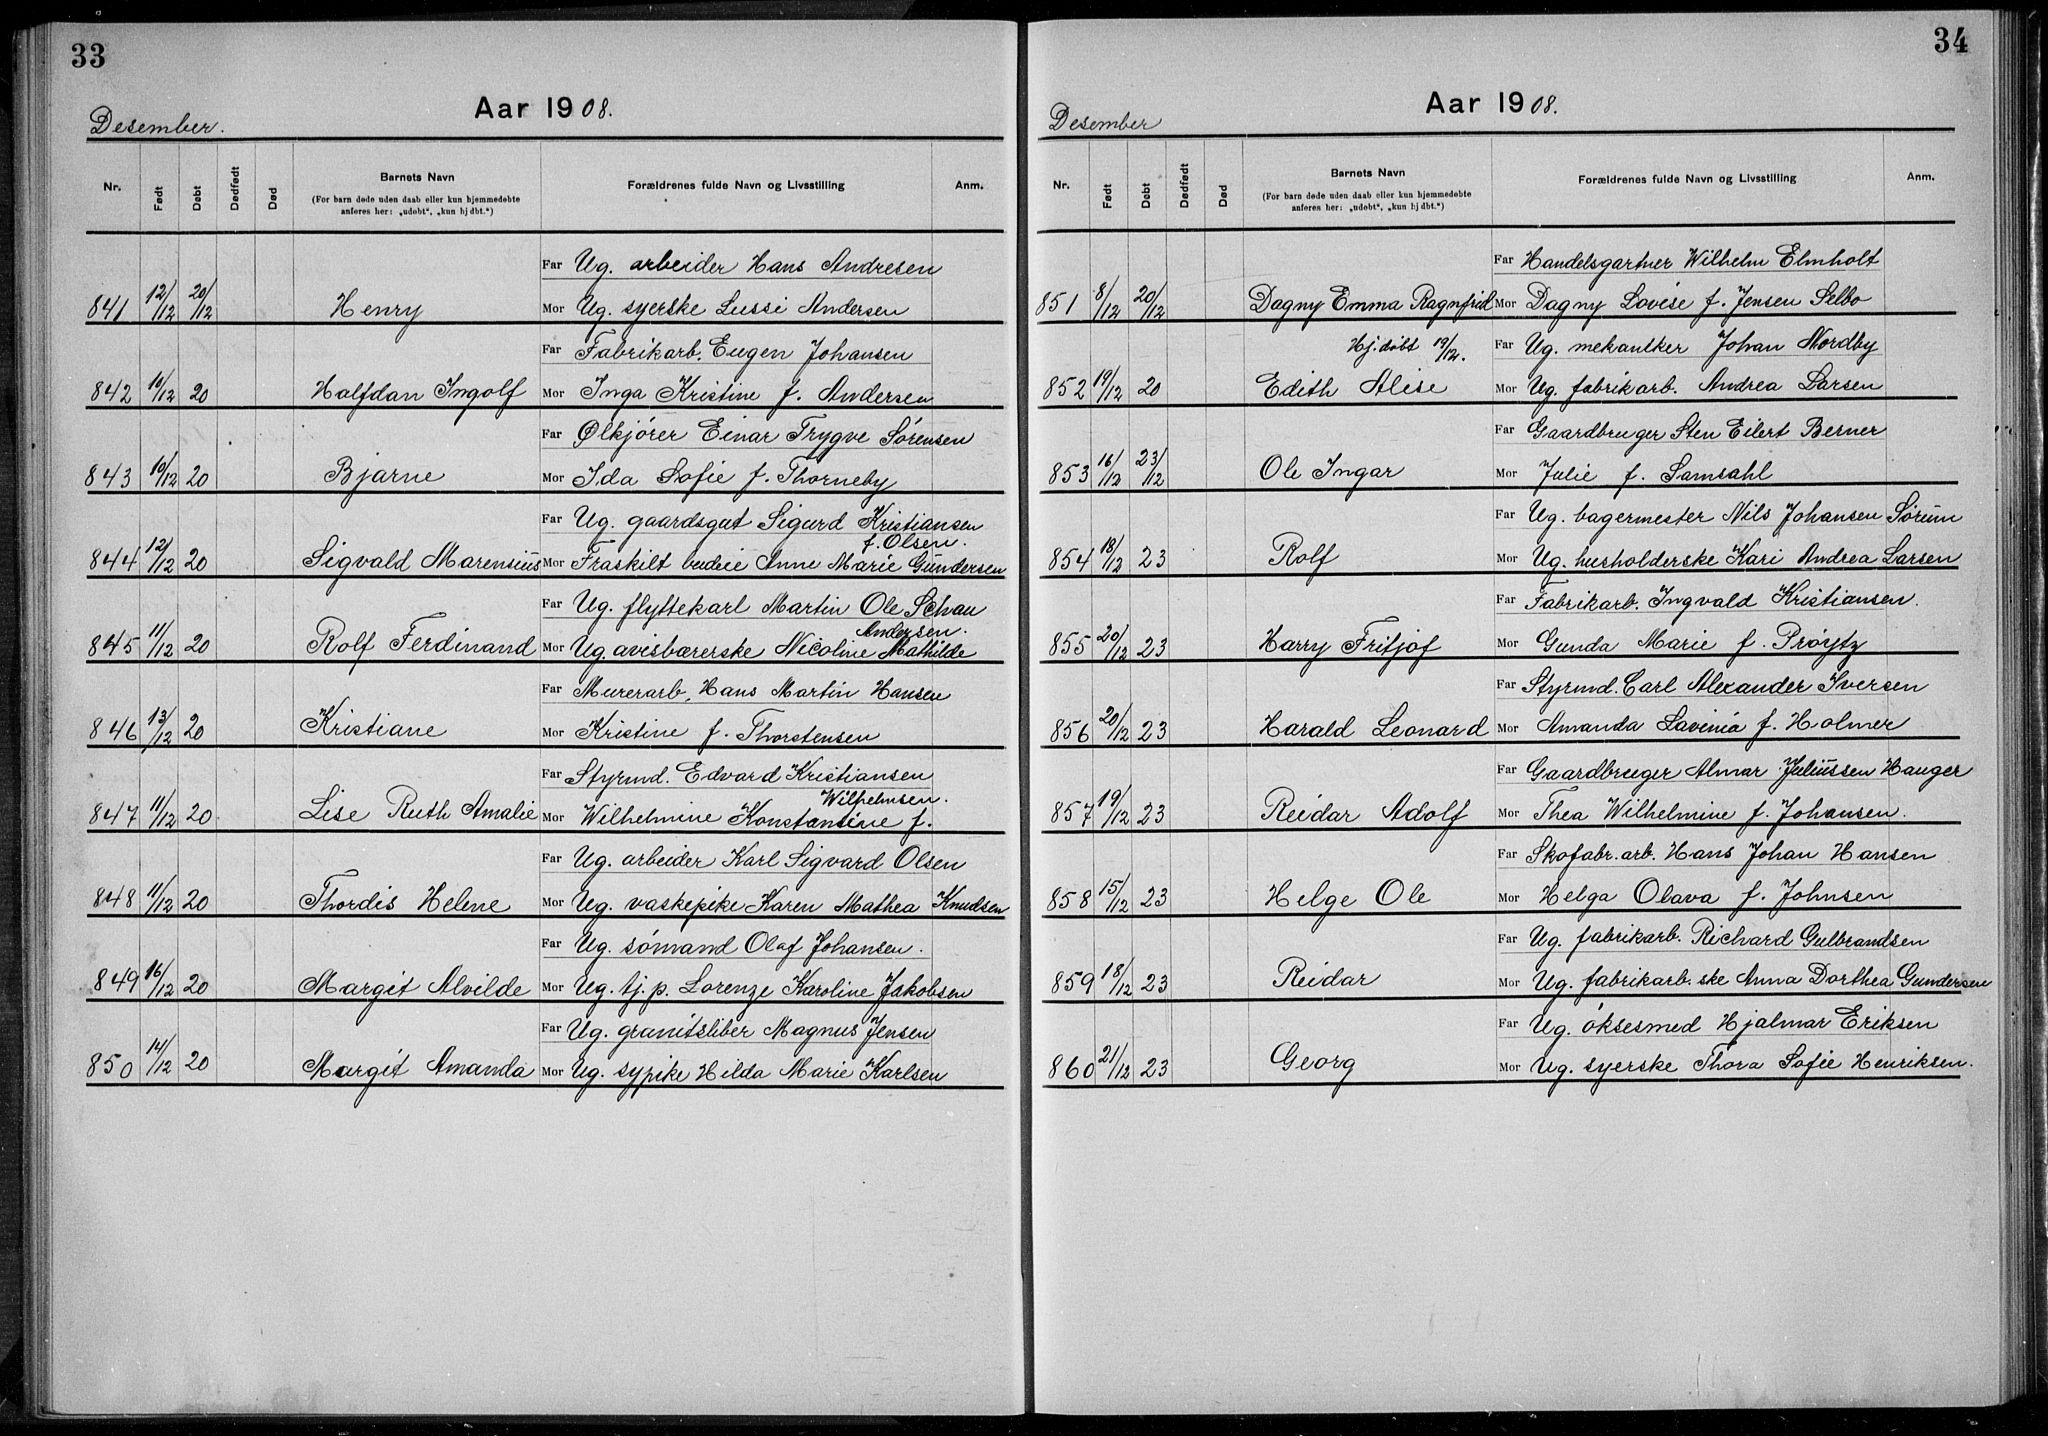 33
Aar 1908.
Desember.
Nr.
Født
Døbt
Dødfødt
Død
Barnets Navn
(For barn døde uden daab eller kun hjemmedøbte
anføres her: „udøbt", „kun hj dbt.")
Forældrenes fulde Navn og Livsstilling
Anm.
Far Ug. arbeider Hans Andresen
841 12/12 20/12 Henry Mor Ug. syerske Lussi Andersen
Far Fabrikarb. Eugen Johansen
842 10/12 20 Halfdan Ingolf Mor Inga Kristine f. Andersen
Far Ølkjører Einar Trygve Sørensen
843 10/12 20 Bjarne Mor Ida Sofie f. Thorneby
Far Ug. gaardsgut Sigurd Kristiansen
f. Olsen.
844 12/12 20 Sigvald Marensius Mor Fraskilt budeie Anne Marie Gundersen
Far Ug. flyttekarl Martin Ole Schau
Andersen.
845 11/12 20 Rolf Ferdinand Mor Ug. avisbærerske Nicoline Mathilde
Far Murerarb. Hans Martin Hansen
846 13/12 20 Kristiane Mor Kristine f. Thorstensen
Far Styrmd. Edvard Kristiansen
Wilhelmsen.
847 11/12 20 Lise Ruth Amalie Mor Wilhelmine Konstantine f.
Far Ug. arbeider Karl Sigvard Olsen
848 11/12 20 Thordis Helene Mor Ug. vaskepike Karen Mathea Knudsen
Far Ug. sømand Olaf Johansen.
849 16/12 20 Margit Alvilde Mor Ug. tj. p. Lorenze Karoline Jakobsen
Far Ug. granitsliber Magnus Jensen
850 14/12 20 Margit Amanda Mor Ug. sypike Hilda Marie Karlsen
34
Aar 1908.
Desember
Nr.
Født
Døbt
Dødfødt
Død
Barnets Navn
(For barn døde uden daab eller kun hjemmedøbte
anføres her: „udøbt", „kun hj dbt.")
Forældrenes fulde Navn og Livsstilling
Anm.
Far Handelsgartner Wilhelm Elmholt
851 8/12 20/12 Dagny Emma Ragnfrid Mor Dagny Lovise f. Jensen Selbo
Hj. døbt 19/12. Far Ug. mekaniker Johan Nordby
852 19/12 20 Edith Alise Mor Ug. fabrikarb. Andrea Larsen
Far Gaardbruger Sten Eilert Berner
853 16/12 23/12 Ole Ingar Mor Julie f. Samsahl
Far Ug. bagermester Nils Johansen Sørum
854 18/12 23 Rolf Mor Ug. husholderske Kari Andrea Larsen
Far Fabrikarb. Ingvald Kristiansen.
855 20/12 23 Harry Fritjof Mor Gunda Marie f. Prøytz
Far Styrmd. Carl Alexander Iversen
856 20/12 23 Harald Leonard Mor Amanda Lavinia f. Holmer
Far Gaardbruger Almar Juliussen Hauger
857 19/12 23 Reidar Adolf Mor Thea Wilhelmine f. Johansen.
Far Skofabr. arb. Hans Johan Hansen
858 15/12 23 Helge Ole Mor Helga Olava f. Johnsen
Far Ug. fabrikarb. Richard Gulbrandsen
859 18/12 23 Reidar Mor Ug. fabrikarb.ske Anna Dorthea Gundersen
Far Ug. øksesmed Hjalmar Eriksen
860 21/12 23 Georg Mor Ug. syerske Thora Sofie Henriksen.